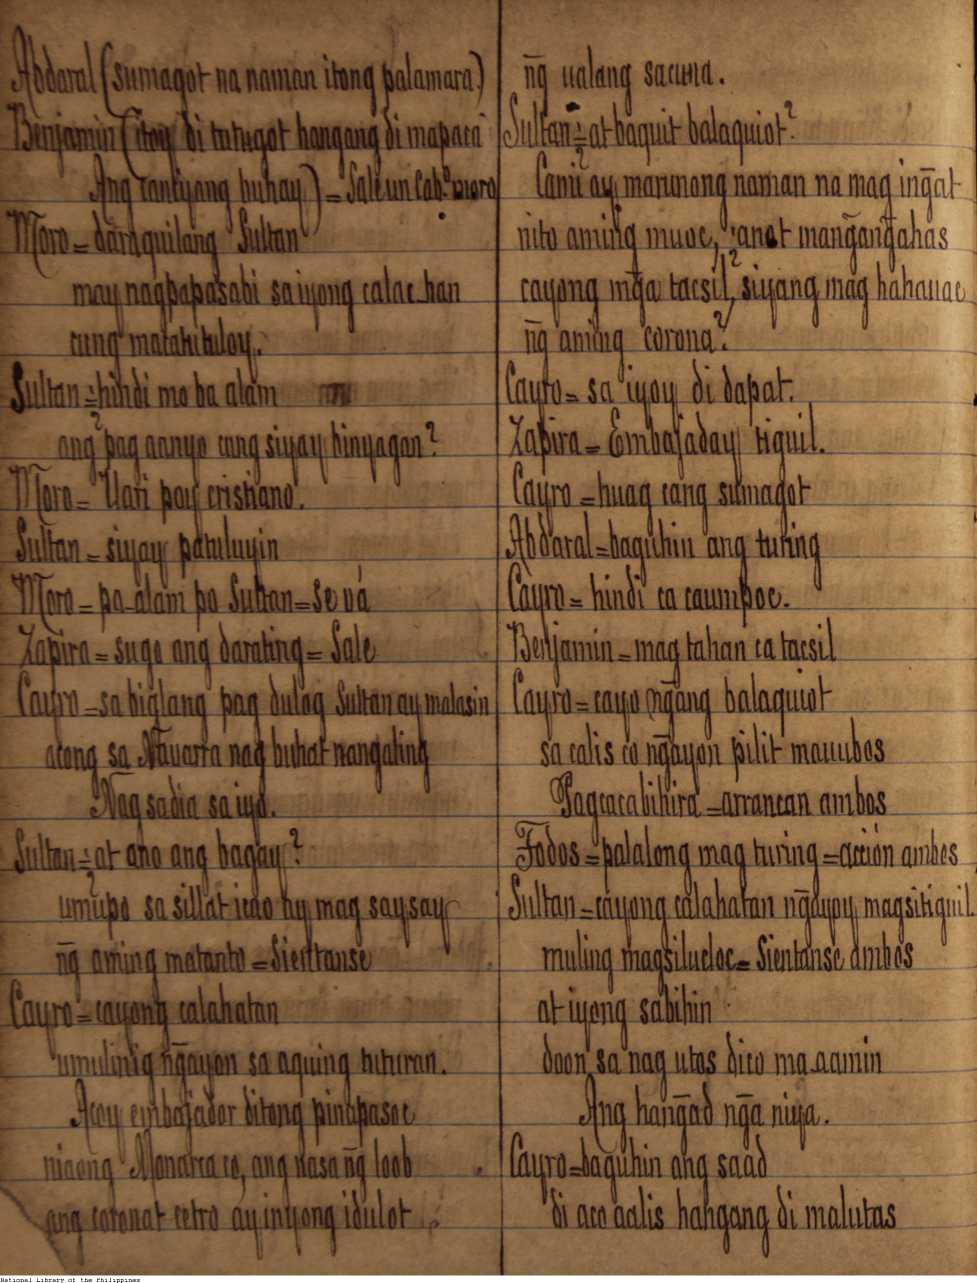 Abdaral (sumagot na naman itong palamara)
Benjamin (itoy di tutugot hangang di mapaca
Ang tantiyang buhay) = Sale un Cabº moro
Moro = daraquilang Sultan
may nagpapasabi sa iyong calac.han
cung matatutuloy.
Sultan = hindi mo ba alam
ang pag aanyo cang siyay binyagan?
Moro = Uari poy cristiano.
Sultan = siyay patuluyin
Moro = pa-alam po Sultan = Se vá
Zapira = sugo ang darating = Sale
Cayro = sa biglang pag dulog Sultan ay malasin
acong sa Navarra nag buhat nangaling
Nag sadia sa iyo.
Sultan = at ano ang bagay?
umupo sa sillat icao hy mag saysay
ñg aming matanto = Sientanse
Cayro = cayong calahatan
umulinig ñgayon sa aquing tuturan.
Acoy embajador ditong pinapasoc
niaong Monarca co, ang nasa ñg loob
ang coronat cetro ay inyong idulot
ñg ualang sacuna.
Sultan = at baquit balaquiot?
Canu ay marunong naman na mag ingat
nito aming muoc, anot mangangahas
cayong mga tacsil, siyang mag hahauac
ñg aming corona?
Cayro = sa iyoy di dapat.
Zapira = Embajaday tiguil.
Cayro = huag cang sumagot
Abdaral = baguhin ang turing
Cayro = hindi ca caumpoc.
Benjamin = mag tahan ca tacsil
Cayro = cayo ñgang balaquiot
sa calis co ñgayon pilit mauubos
Pagcacabihira = arrancan ambos
Todos = palalong mag turing = accion ambos
Sultan = cayong calahatan ñgayoy magsitiguil
muling magsilucloc = Sientanse ambos
at iyong sabihin
doon sa nag utos dico ma-aamin
Ang hangad nga niya.
Cayro = baguhin ang saad
di aco aalis hangang di malutas
National Library of the Philippines